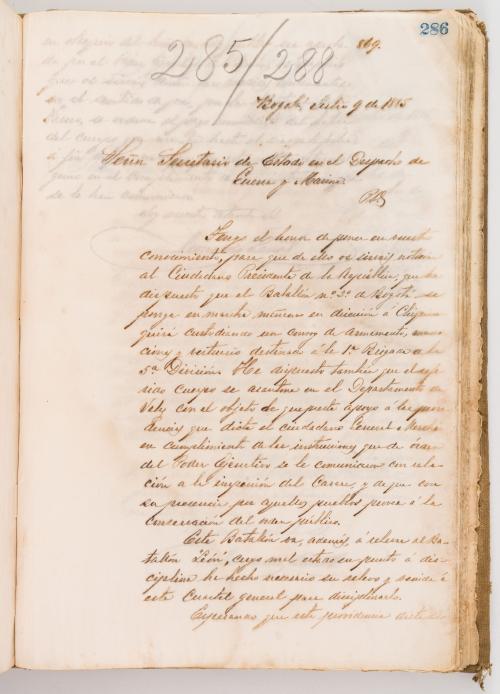 286
285/288
869.
Bogotá, Julio 9 de 1885
Señor Secretario de Estado en el Despacho de
Guerra y Marina
Tengo el honor de poner en vuestro
conocimiento, para que de ello os sirvais noticiar
al Ciudadano Presidente de la República, que he
dispuesto que el Batallón nº 3º de Bogotá se
ponga en marcha mañana en dirección á Chiquin
quirá custodiando un convoy de armamento, muni
ciones y vestuario destinado á la 1ª Brigada de la
5ª División. He dispuesto también que el refe
rido Cuerpo se acantone en el Departamento de
Vélez con el objeto de que preste apoyo á las provi
dencias que dicte el ciudadano General
en cumplimiento de las instrucciones que de órden
del Poder Ejecutivo se le comunicaron con rela
ción á la inspección del Carare, y de que con
su presencia por aquellos pueblos provea á la
conservación del orden público.
Este Batallón va, además, á relevar al Ba-
tallón León, cuyo mal estado en punto á dis-
ciplina ha hecho necesario su relevo y venida á
este Cuartel general para disciplinarlo.
Esperamos que esta providencia